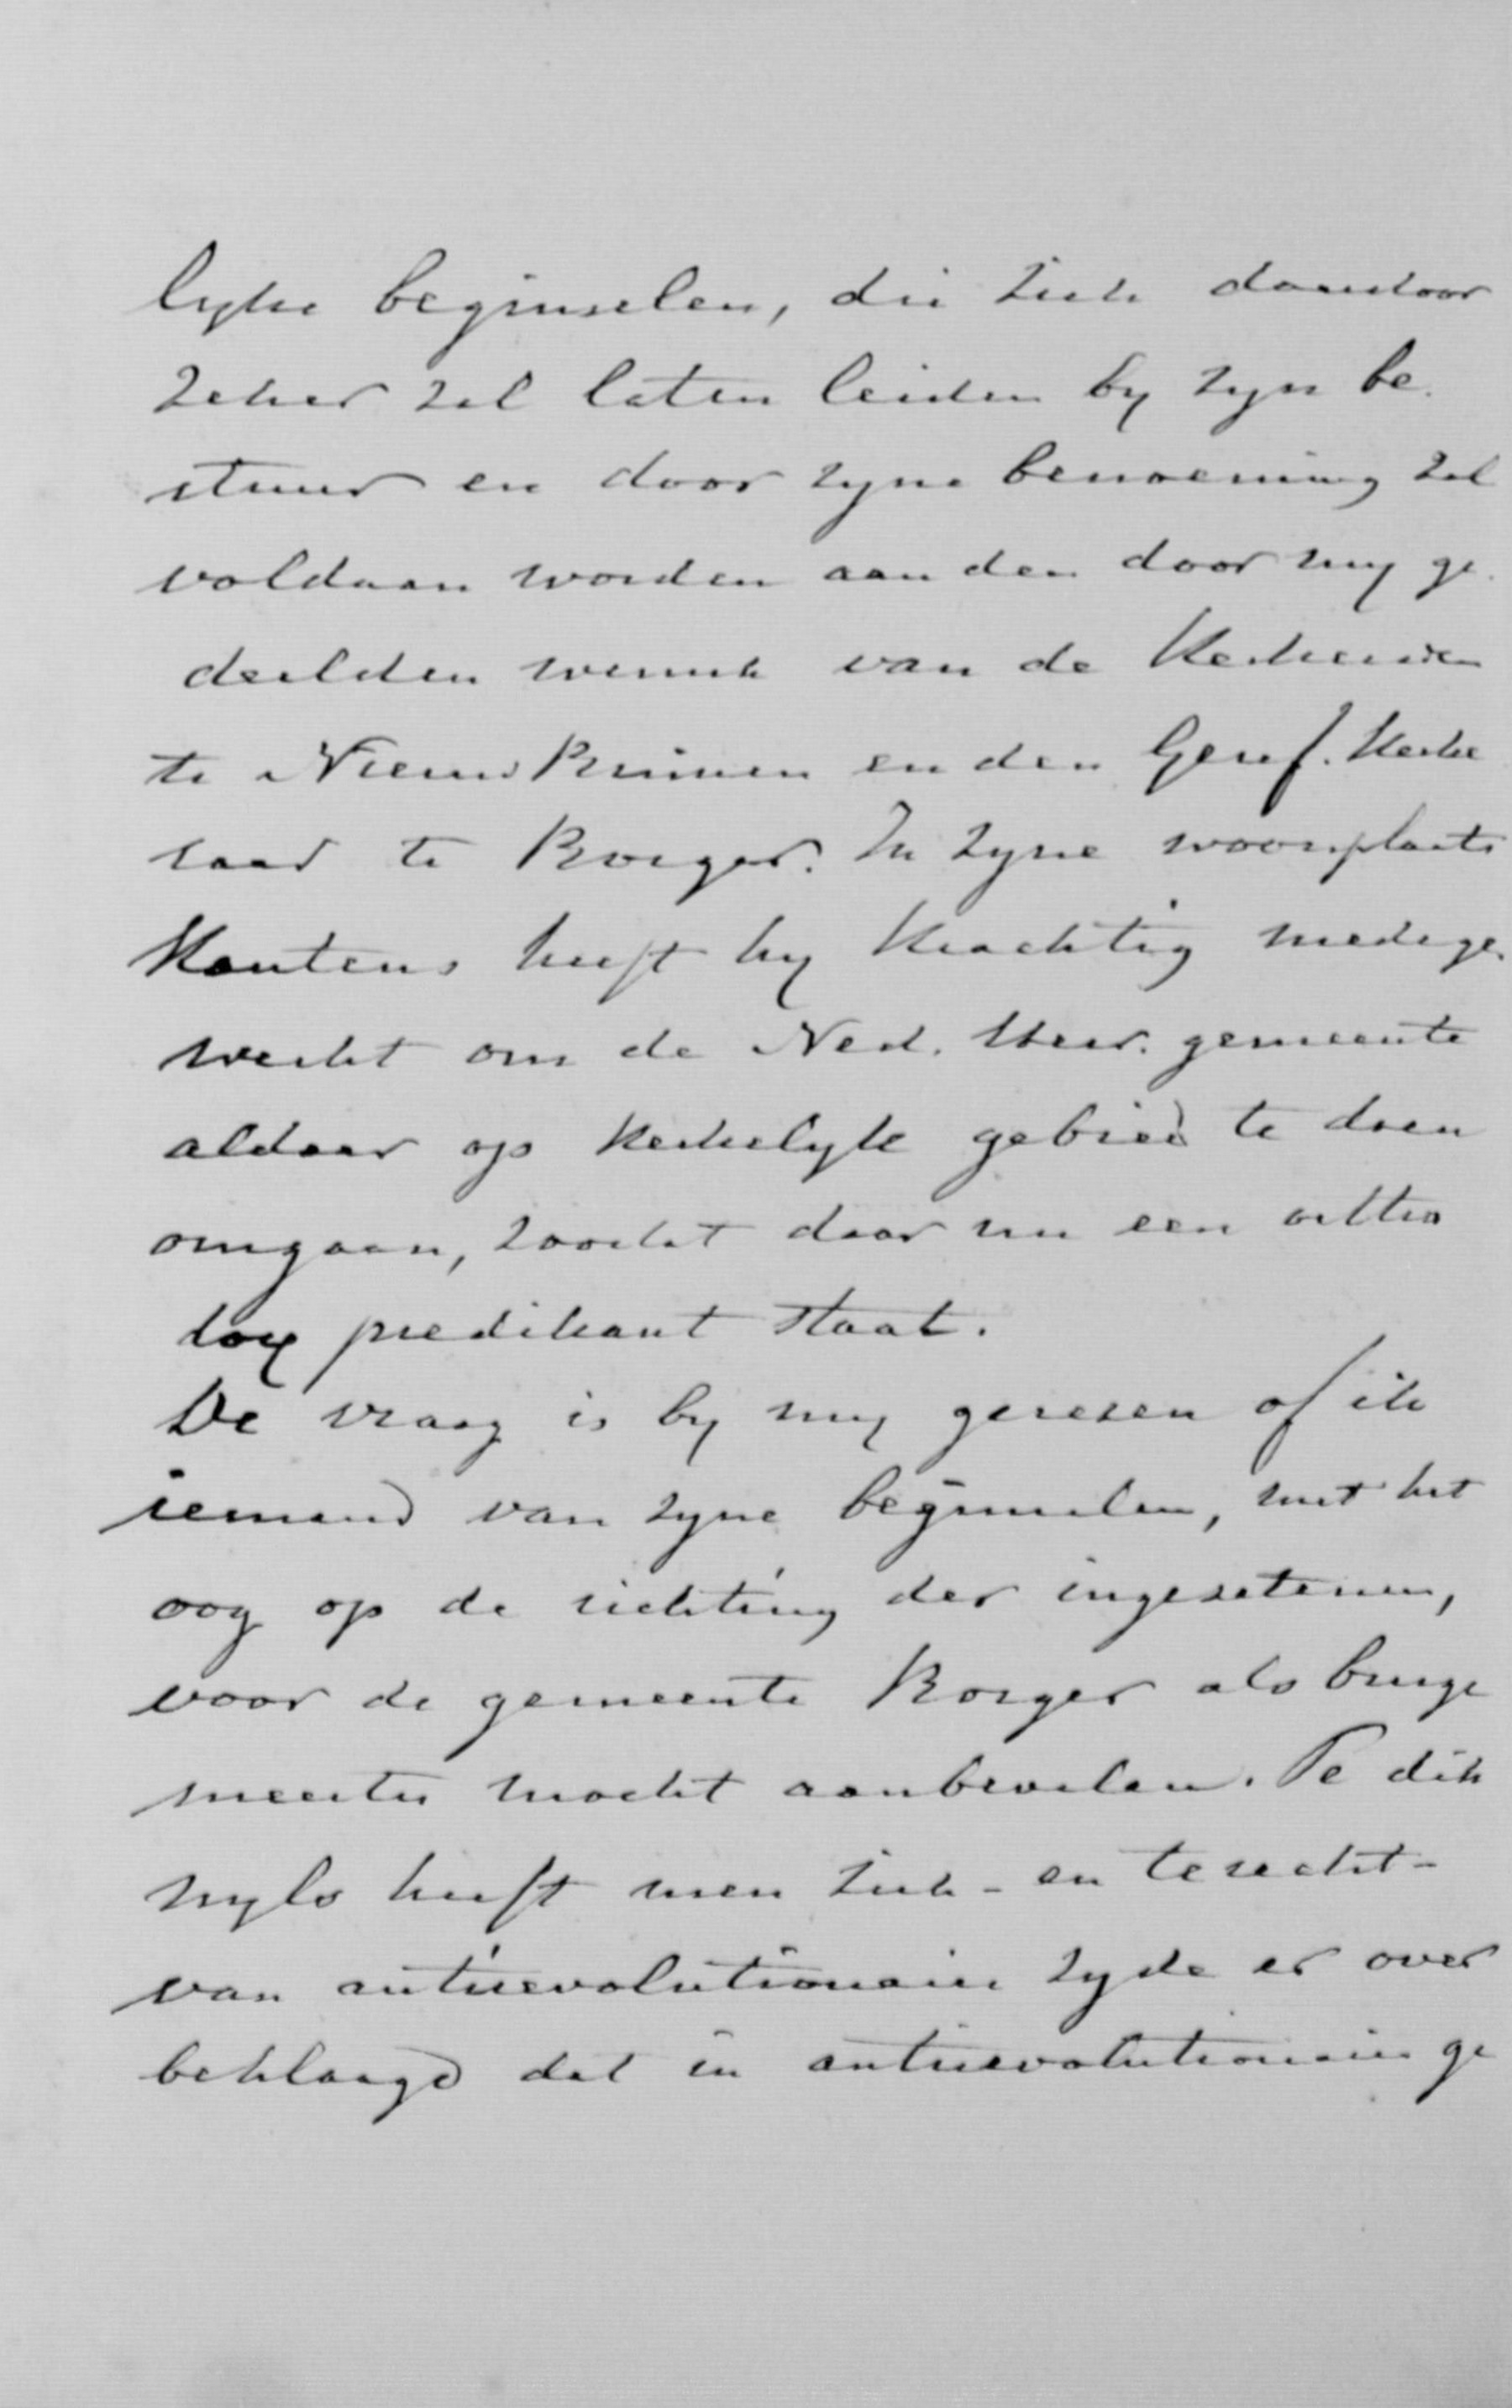 lyke beginselen, die zich daardoor
zeker zal laten leiden by zyn be-
stuur en door zyne benoeming zal
voldaan worden aan den door my ge-
deelden wensch van de Kerkeraden
te Nieuw Buinen en den Geref. Kerke
raad te Borger. In zyne woonplaats
Koutens heeft hy krachtig medege-
werkt om de Ned. Herv. gemeente
aldaar op kerkelyk gebied te doen
omgaan, zoodat daar nu een ortho
dox predikant staat.
De vraag is by my gerezen of ik
iemand van zyne beginselen, met het
oog op de richting der ingezetenen,
voor de gemeente Borger als burge
meester mocht aanbevelen. Te dik
wyls heeft men zich - en terecht -
van antirevolutionaire zyde er over
beklaagd dat in antirevolutionaire ge